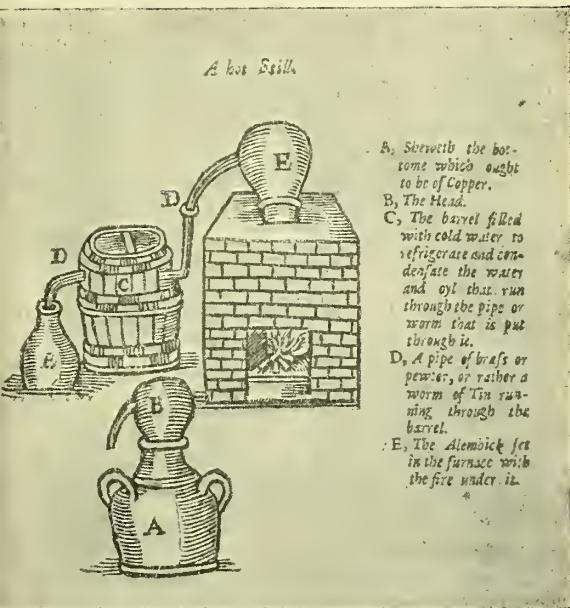 A hot Still.
E
D
D
C
B
B
A
A, Sheweth the bot-
tome which ought
to be of Copper.
B, The Head.
C, The barrel filled
with cold water to
refrigerate and con-
densate the water
and oyl that run
through the pipe or
worm that is put
through it.
D, A pipe of brass or
pewter, or rather a
worm of Tin run-
ning through the
barrel.
E, The Alembick set
in the furnace with
the fire under it.